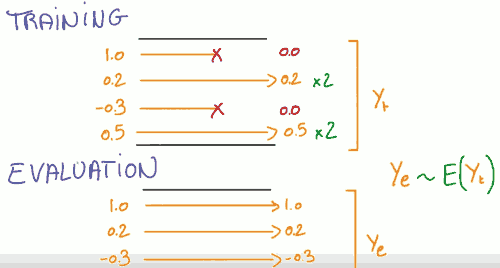 TRAINING
1.0 x 0.0
0.2 0.2 x2
-0.3 x 0.0
0.5 0.5 x2
Yt
EVALUATION
Ye ~ E(Yt)
1.0 1.0
0.2 0.2
-0.3 -0.3
Ye